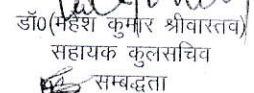 डॉ0(महेश कुमार श्रीवास्तव)
सहायक कुलसचिव
सम्बद्धता